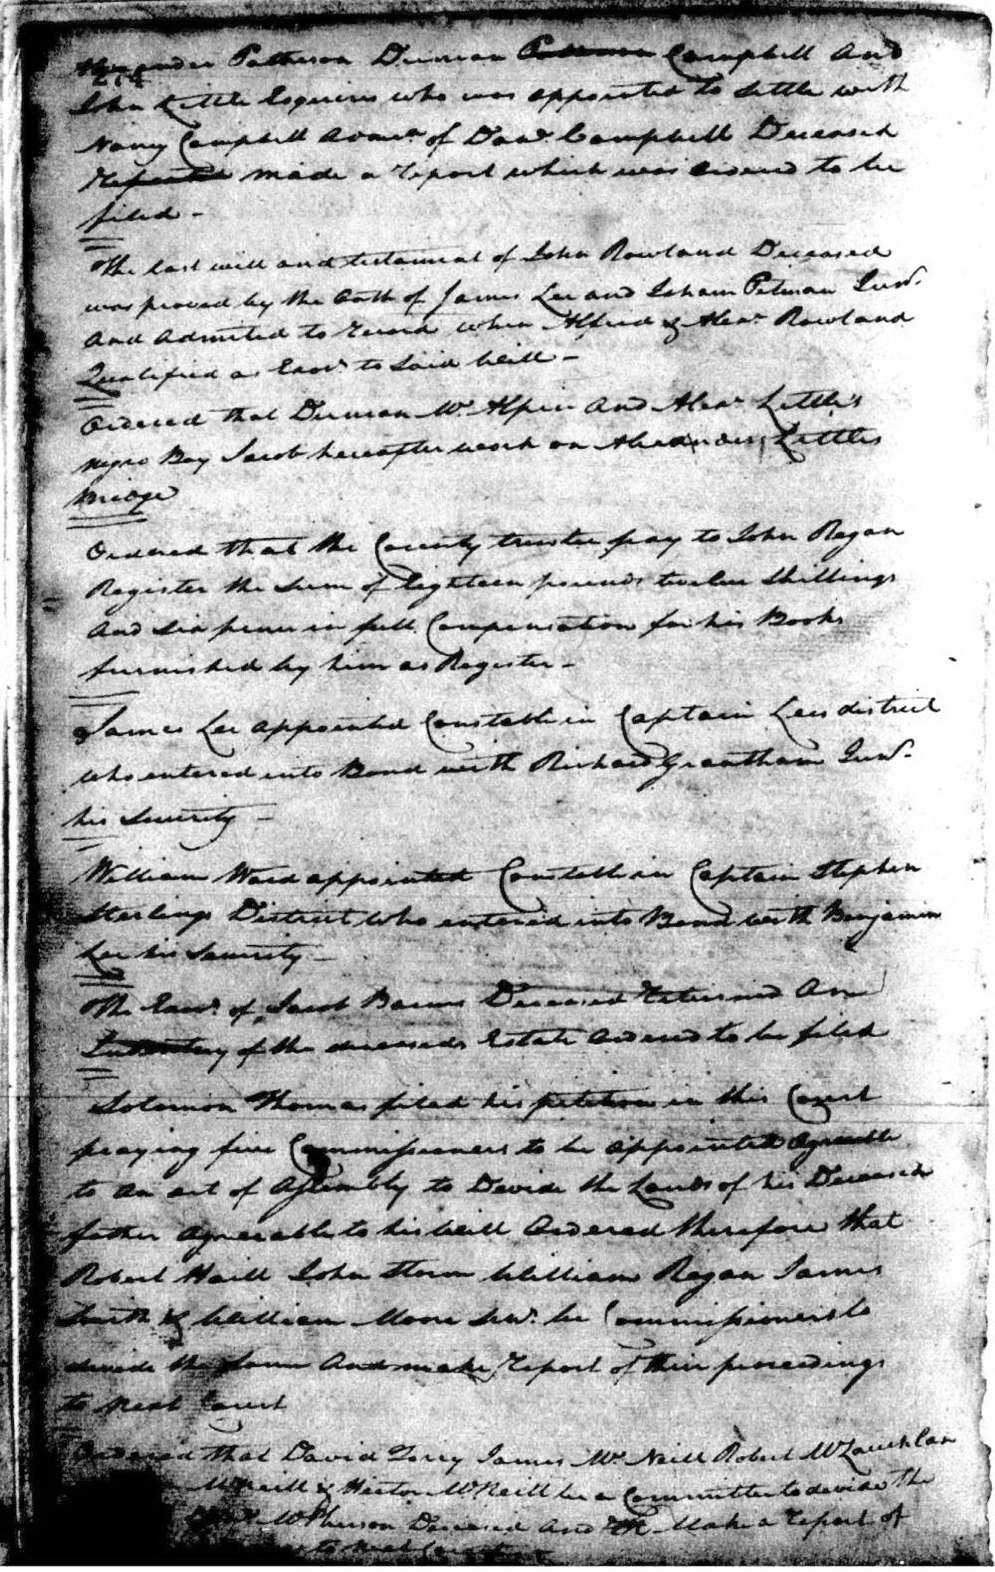 Patterson Duncan Patterson Campbell And
John Little Esquires who was appointed to Settle with
Nancy Campbell Admx of Dan.l Campbell Deceased
Reported made a report which was ordered to be
filed -
The last will and testament of John Rowland Deceased
was proved by the Oath of James Lee and Isham Pitman Jun.r
And Admitted to record when Alfred & Alex.r Rowland
Qualified as Exo.rs to Said Will -
Ordered that Duncan Mc Alpin And Alex.r Little's
negro Boy Jacob hereafter work on Alexander Littles
Bridge
Ordered that the County trustee pay to John Regan
Register the Sum of Eighteen pounds twelve Shillings
And Six pence in full Compensation for his Books
furnished by him as Register -
James Lee appointed Constable in Captain Lees district
who entered into Bond with Richard Grantham Jun.r
his Security -
William Ward appointed Constable in Captain Stephen
Sterlings District who entered into Bond with Benjamin
Lee his Security -
The Exo.rs of Jacob Barnes Deceased returned An
Inventory of the deceaseds Estate Ordered to be filed
Solomon Thomas filed his petition in this Court
praying five Commissioners to be appointed Agreeable
to An act of Assembly to Devide the Lands of his Deceased
father Agreeable to his Will Ordered therefore that
Robert Haill John Storm William Regan James
Smith & William Moore Sen.r be Commissioners to
devide the Same And make report of their proceedings
to next Court
Ordered that David Torry James Mc Neill Robert McLauchlan
McNeill & Hector McNeill be a Committee to devide the
McPherson Deceased And Make a report of
to next Court -